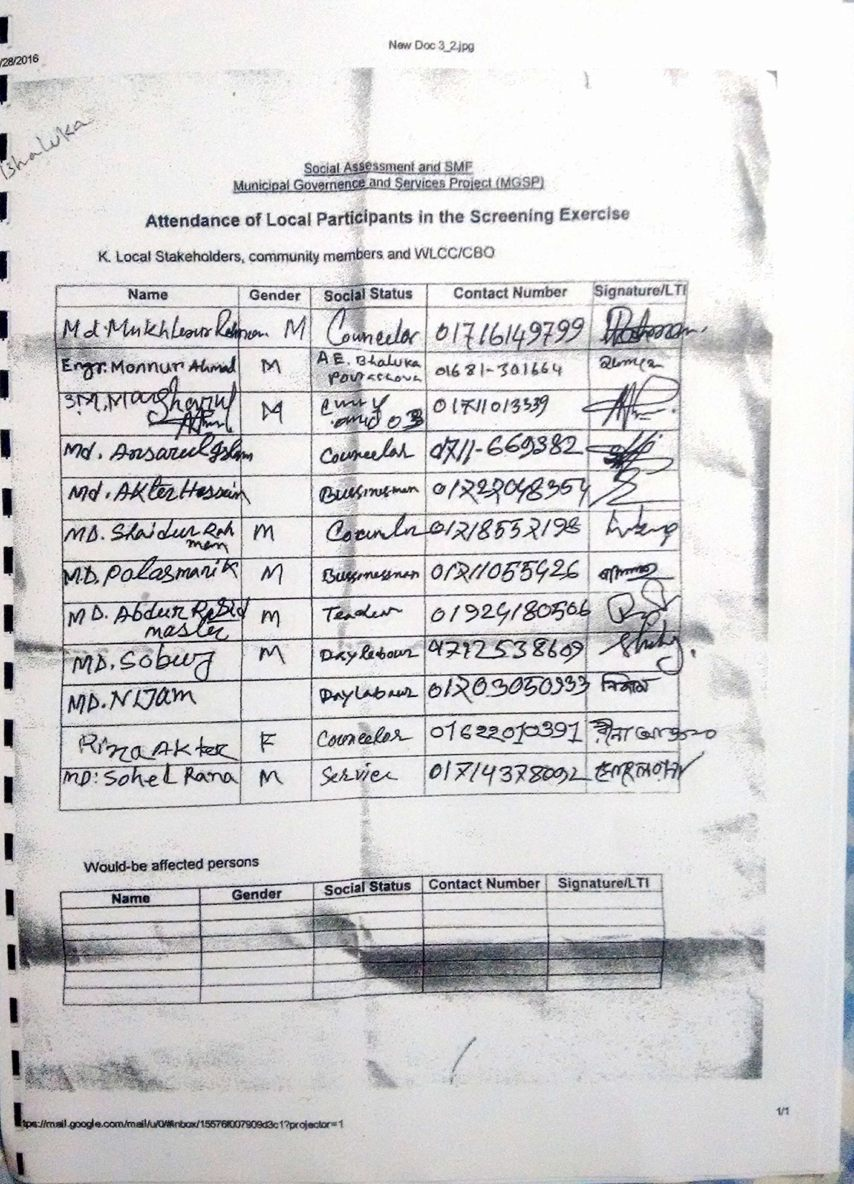 New Doc 3_2.jpg
/28/2016
Bhaluka
Social Assessment and SMF
Municipal Governence and Services Project (MGSP)
Attendance of Local Participants in the Screening Exercise
K. Local Stakeholders, community members and WLCC/CBO
Name Gender Social Status Contact Number Signature/LTI
Md. Mukhlesur Rahman M Councelor 01716149799
Engr. Monnuri Ahmad M A.E. Bhaluka 01681-301664
Pourashova
S.M. M 01711013339
Md. Ansarul Islam Councelor 0711-669382
Md. Akter Hossain Bussinesman
MD. Shaidur Rah M
man
M.D. Palasmanik M Bussinessman
MD. Abdur Rashid M 01924180506
master
MD. Sobuj M Daylabour
MD. NIJam Daylabour নিজাম
Rina Akter F Councelor 01622010391 রীনা আক্তার
MD: Sohel Rana M Service 01714378092
Would-be affected persons
Name Gender Social Status Contact Number Signature/LTI
1/1
tps://mail.google.com/mail/u/0/#inbox/15576f007909d3c1?projector=1